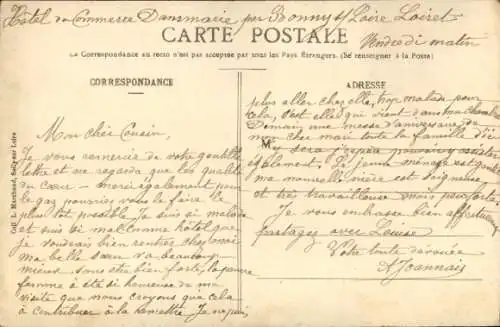 Hôtel du Commerce Dammarie par Bonny s/ Loire Loiret
CARTE POSTALE
Vendredi matin
La Correspondance au recto n'est pas acceptée par tous les Pays Étrangers. (Se renseigner à la Poste)
CORRESPONDANCE
Mon cher Cousin,
Je vous remercie de votre gentille
lettre et me regarda que les qualités
du cœur – merci également pour
le gaz pourriez vous le faire le
plus tôt possible Je suis si malade
et suis si mal comme hôtel que
je voudrais bien rentrer chez moi
ma belle sœur va beaucoup
mieux sans être bien forte, la pauvre
femme a été si heureuse de ma
visite que nous croyons que cela
à contribuer à la remettre Je ne puis
ADRESSE
plus aller chez elle, trop malade pour
cela, c'est elle qui vient dans ma chambre
Demain une messe d'anniversaire de
mon cher mari toute la famille d'ici
M
sera pourrai assister
également. Le jeune ménage est
ma nouvelle nièce est soigneuse
et très travailleuse mais peu forte
Je vous embrasse bien affectueusement
partagez avec Louise
Votre toute dévouée
A Joannais
Coll. L. Marchand, Sully-sur-Loire